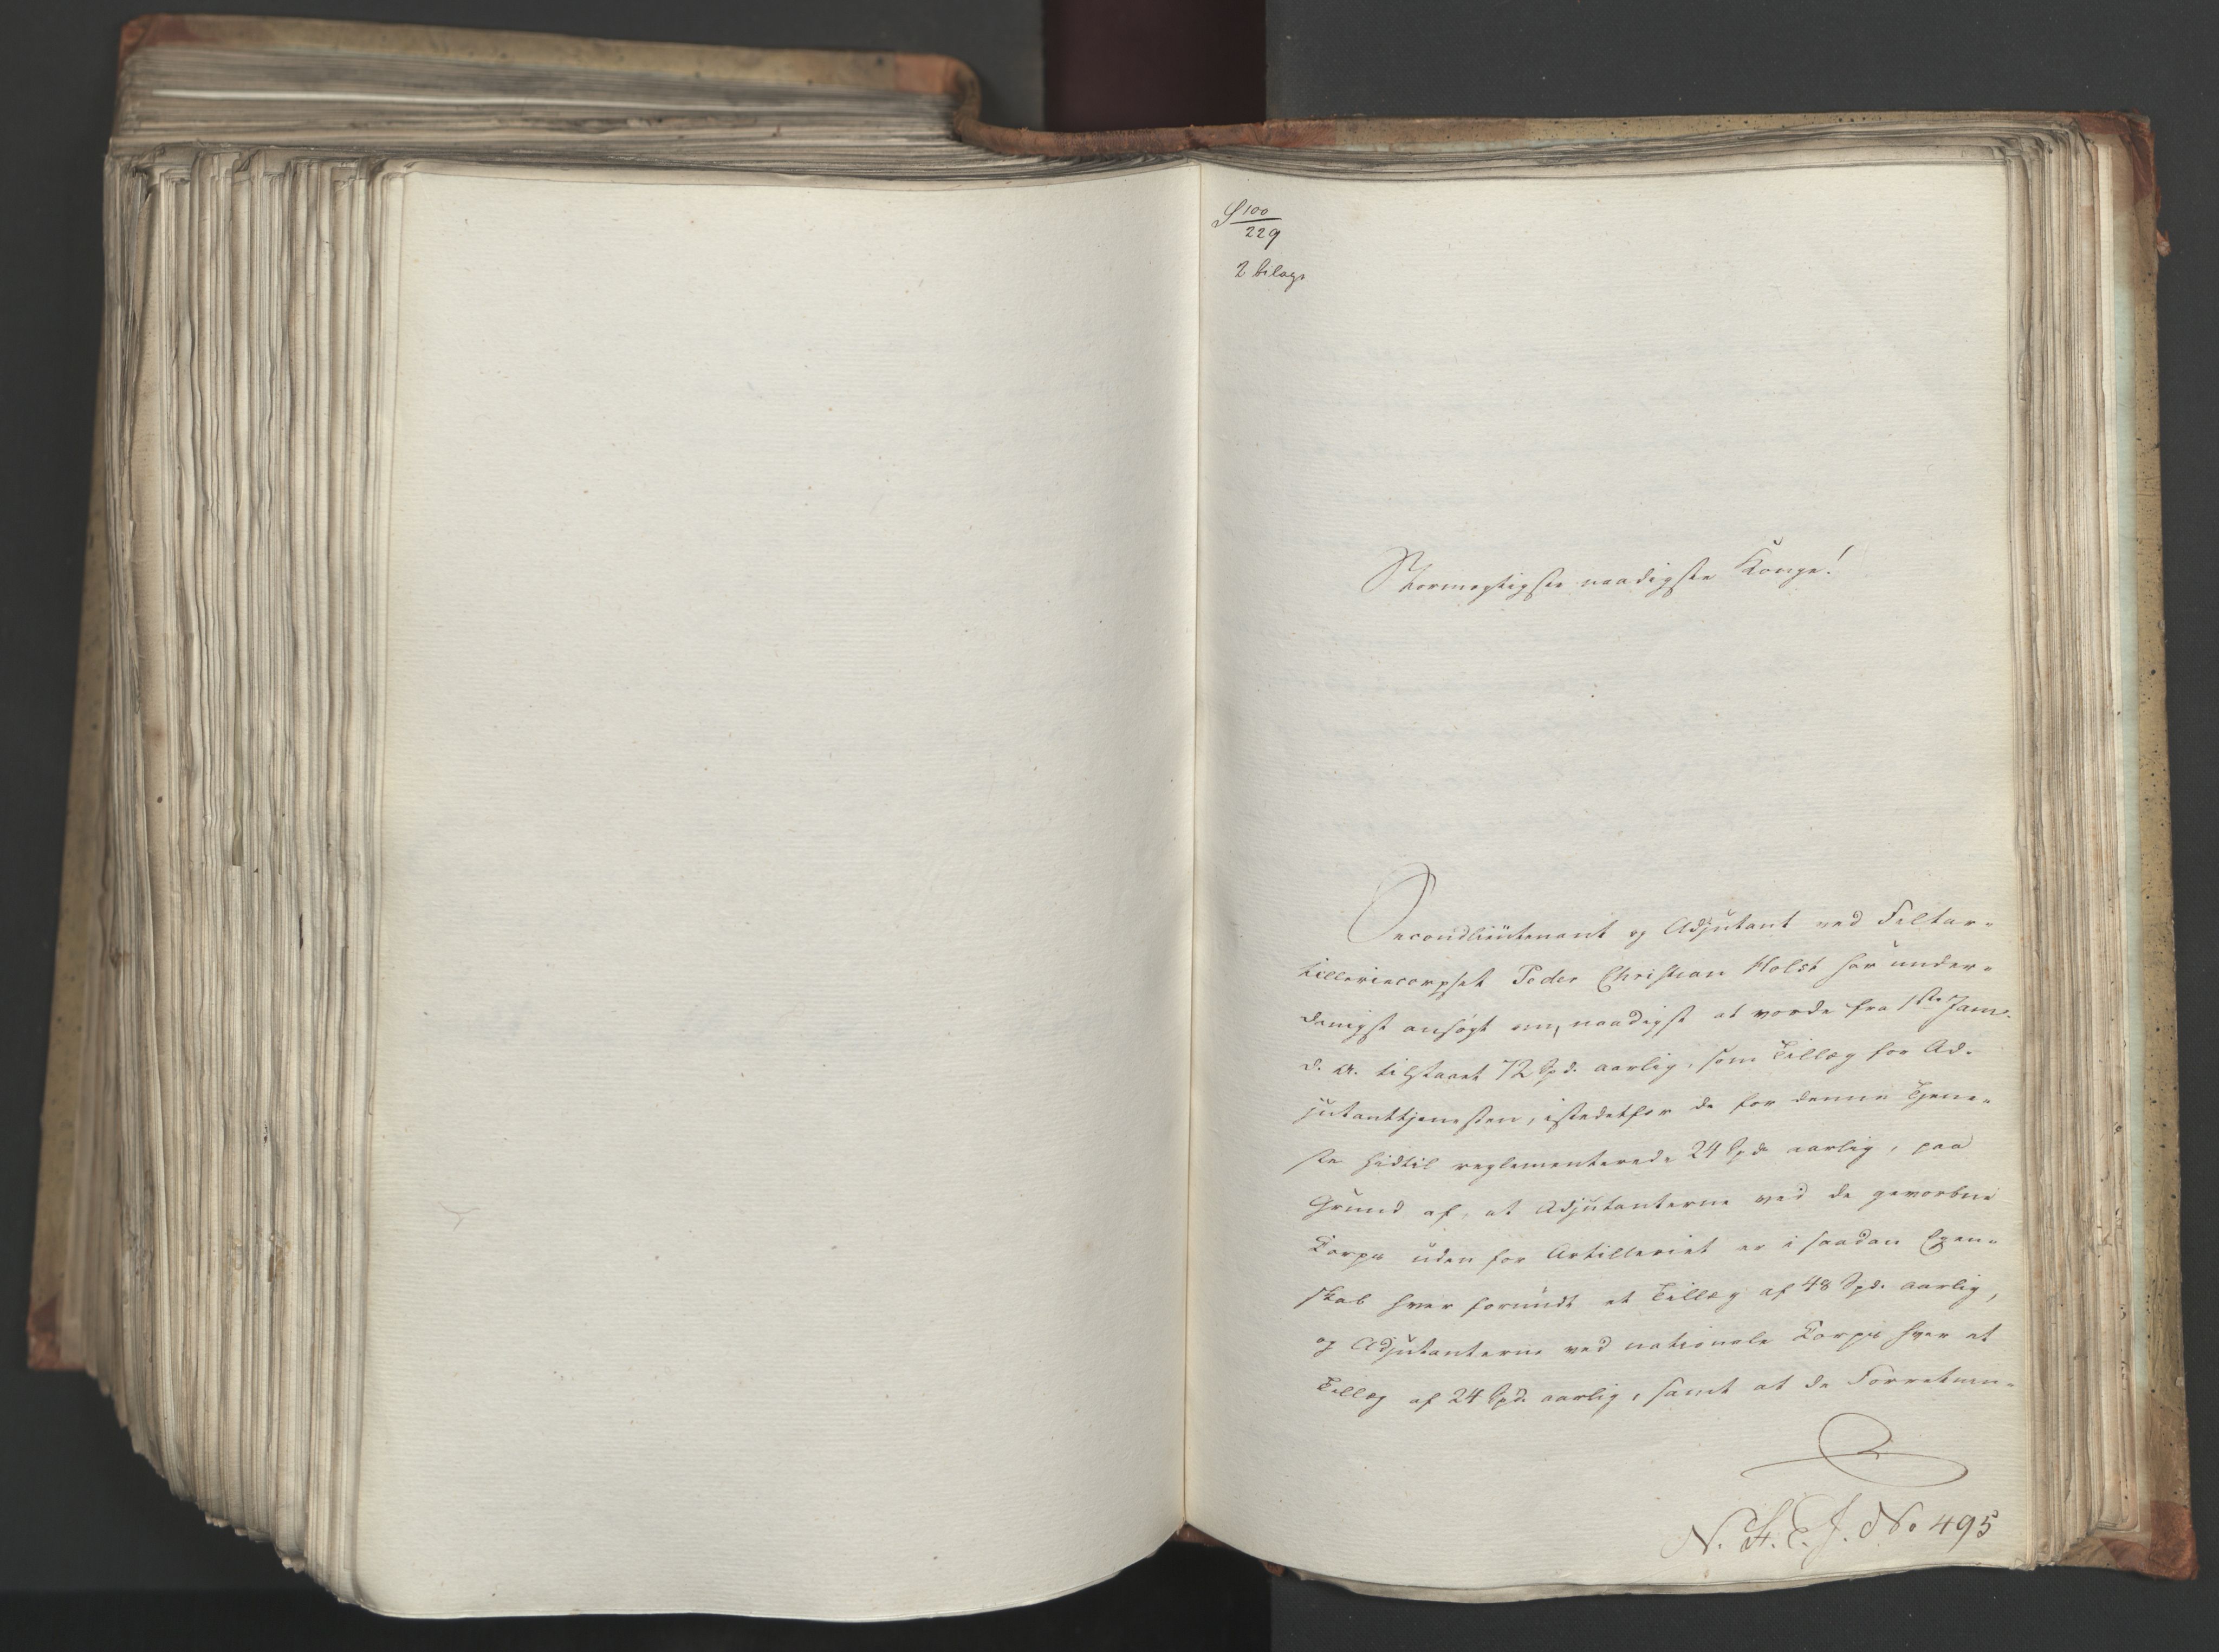 S 100
229
2 bilage
Stormegtigste naadigste Konge!
Secondlieutenant og Adjutant ved Feltar-
tilleriecorpset Peder Christian Holst har under-
danigst ansøgt om, naadigst at vorde fra 1ste Janr.
d. A. tilstaaet 72 Spd. aarlig, som Tillæg for Ad-
jutanttjenesten, istedetfor de for denne Tjene-
ste hidtil reglementerede 24 Spd. aarlig, paa
Grund af, at Adjutanterne ved de gevorbne
Corps uden for Artilleriet er i saadan Egen-
skab hver forundt et Tillæg af 48 Spd. aarlig,
og Adjutanterne ved nationale Corps hver et
Tillæg af 24 Spd. aarlig, samt at de Forretnin-
N. St. E. J. No 495